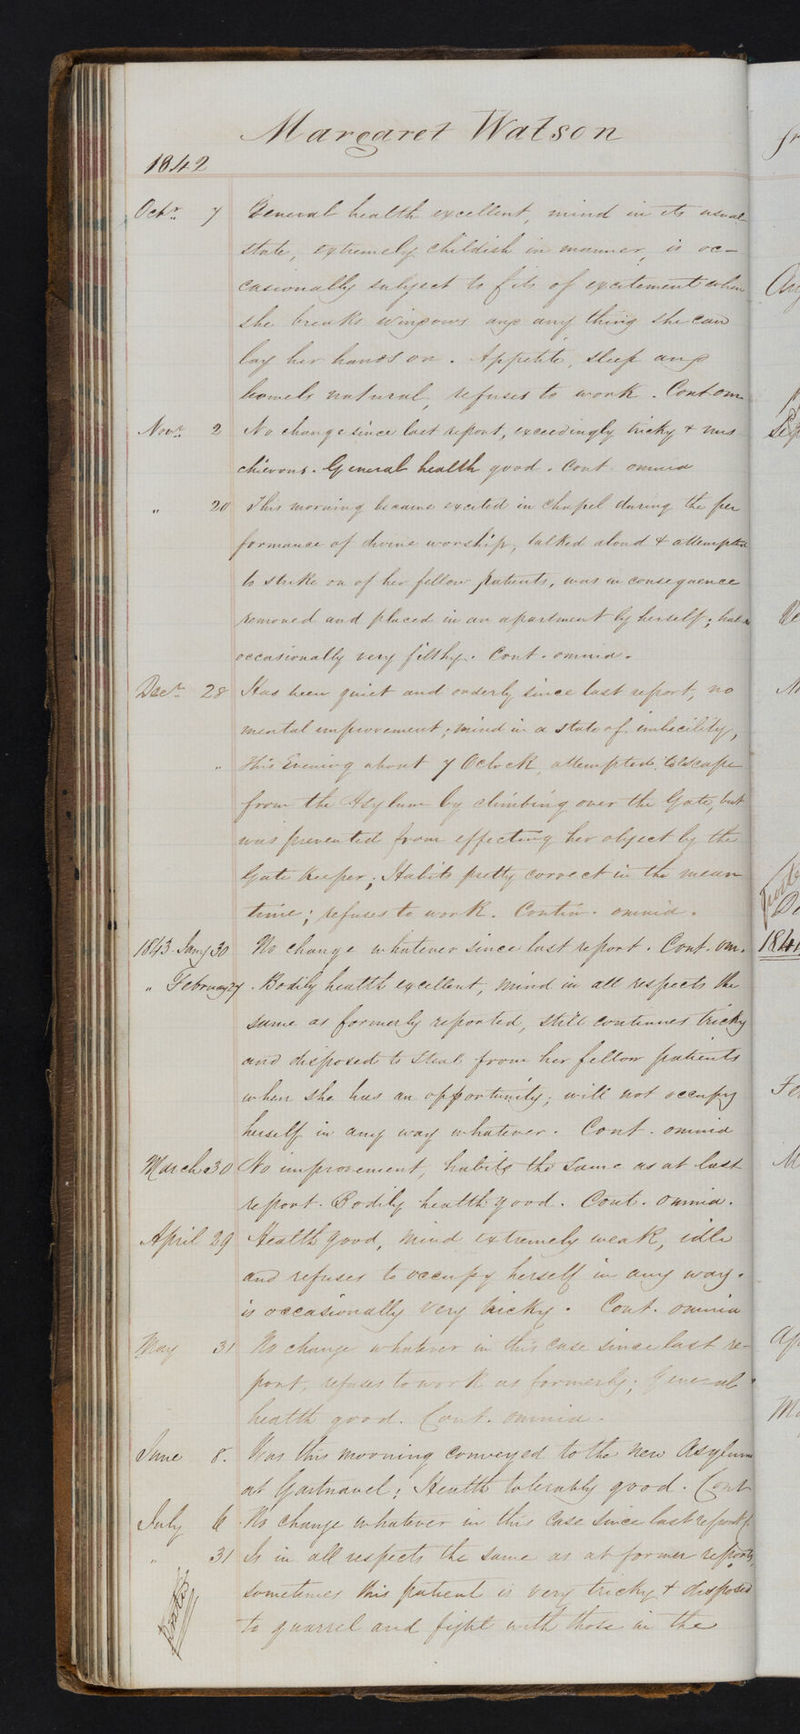 Margaret Watson
1842
Octr. 7 General health excellent, mind in its usual
state, extremely childish in manner, is oc-
casionally subject to fits of excitement when
she breaks windows and any thing she can
lay her hands on. Appetite, sleep and
bowels natural, refuses to work. Cont om
Novr. 2 No change since last report, exceedingly tricky & mis
chievous. General health good. Cont omnia
" 20 This morning became excited in chapel during the per
formance of divine worship, talked aloud & attempted
to strike on of her fellow patients, was in consequence
removed and placed in an apartment by herself;
occasionally very filthy. Cont. omnia.
Decr. 28 Has been quiet and orderly since last report, no
mental improvement; mind in a state of imbicility,
" This Evening about 7 Oclock, attempted to Escape
from the Asylum by climbing over the Gate, but
was prevented from effecting her object by the
Gate Keeper; Habits pretty correct in the mean
time; refuses to work. Contin. omnia.
1843 Jany 30 No change whatever since last report. Cont. om.
" February 27. Bodily health excellent, mind in all respects the
same as formerly reported, still continues tricky
and disposed to Steal from her fellow patients
when she has an opportunity; will not occupy
herself in any way whatever. Cont. omnia
March 30 No improvement, habits the same as at last
report. Bodily health good. Cont. omnia.
April 29 Health good, mind extremely weak, idle
and refuses to occupy herself in any way.
is occasionally very tricky. Cont. omnia
May 31 No change whatever in this case since last re-
port, refuses to work as formerly; General
health good. Cont. omnia.
June 8. Was this morning conveyed to the new Asylum
at Gartnavel; Health tolerably good. Cont
July 6 No change whatever in this Case Since last report
" 31 Is in all respects the same as at former reports,
sometimes this patient is very tricky & disposed
to quarrel and fight with those in the